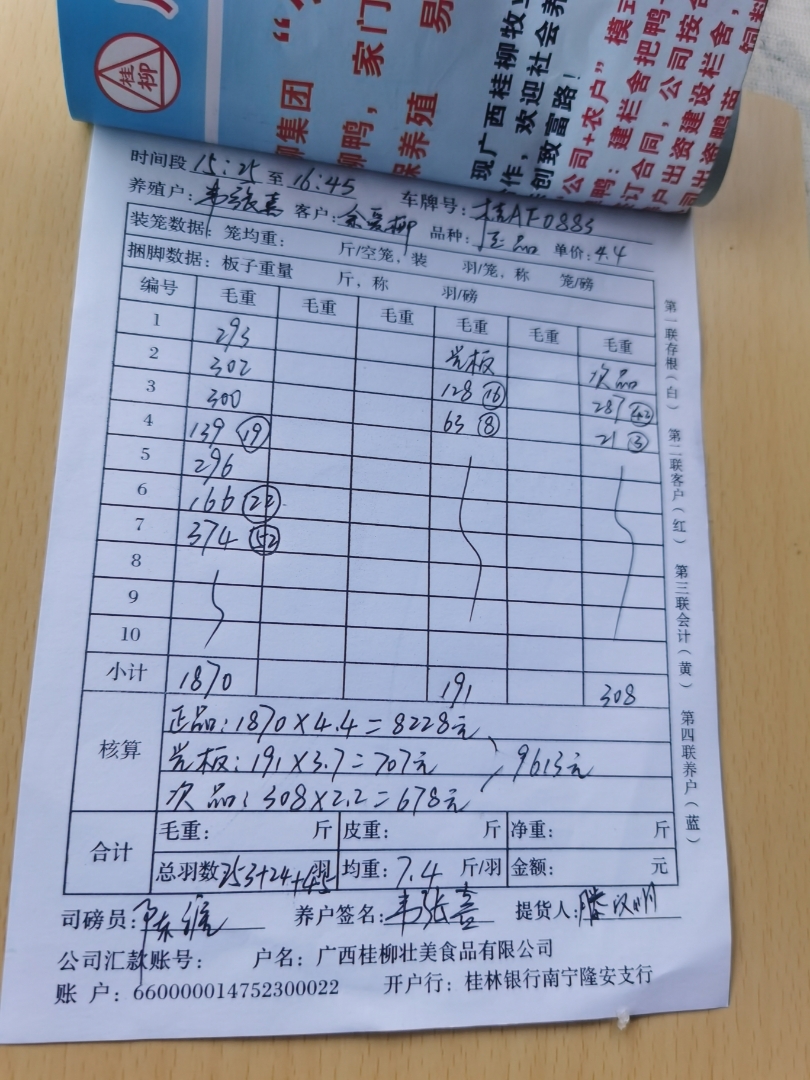 桂柳
集团
鸭，家门
保养殖 易
现广西桂柳牧业
作，欢迎社会养
创致富路！
公司+农户”模式
鸭：建栏舍把鸭
订合同，公司按合
户出资建设栏舍，
司出资鸭苗 饲料
时间段 15:25 至 16:45
养殖户：韦张喜 客户： 车牌号：桂AF0883
品种：正品 单价：4.4
装笼数据：笼均重： 斤/空笼，装 羽/笼，称 笼/磅
捆脚数据：板子重量 斤，称 羽/磅
编号 毛重 毛重 毛重 毛重 毛重 毛重
1 293 光板 次品
2 302 128 16 287 42
3 300 63 8 21 3
4 139 19
5 296
6 166 22
7 374 52
8
9
10
小计 1870 191 308
核算
正品：1870×4.4=8228元
光板：191×3.7=707元 9613元
次品：308×2.2=678元
合计
毛重： 斤 皮重： 斤 净重： 斤
总羽数 253+24+45 羽 均重：7.4 斤/羽 金额： 元
司磅员： 养户签名：韦张喜 提货人：滕汉明
公司汇款账号： 户名：广西桂柳壮美食品有限公司
账 户：660000014752300022 开户行：桂林银行南宁隆安支行
第一联存根（白） 第二联客户（红） 第三联会计（黄） 第四联养户（蓝）